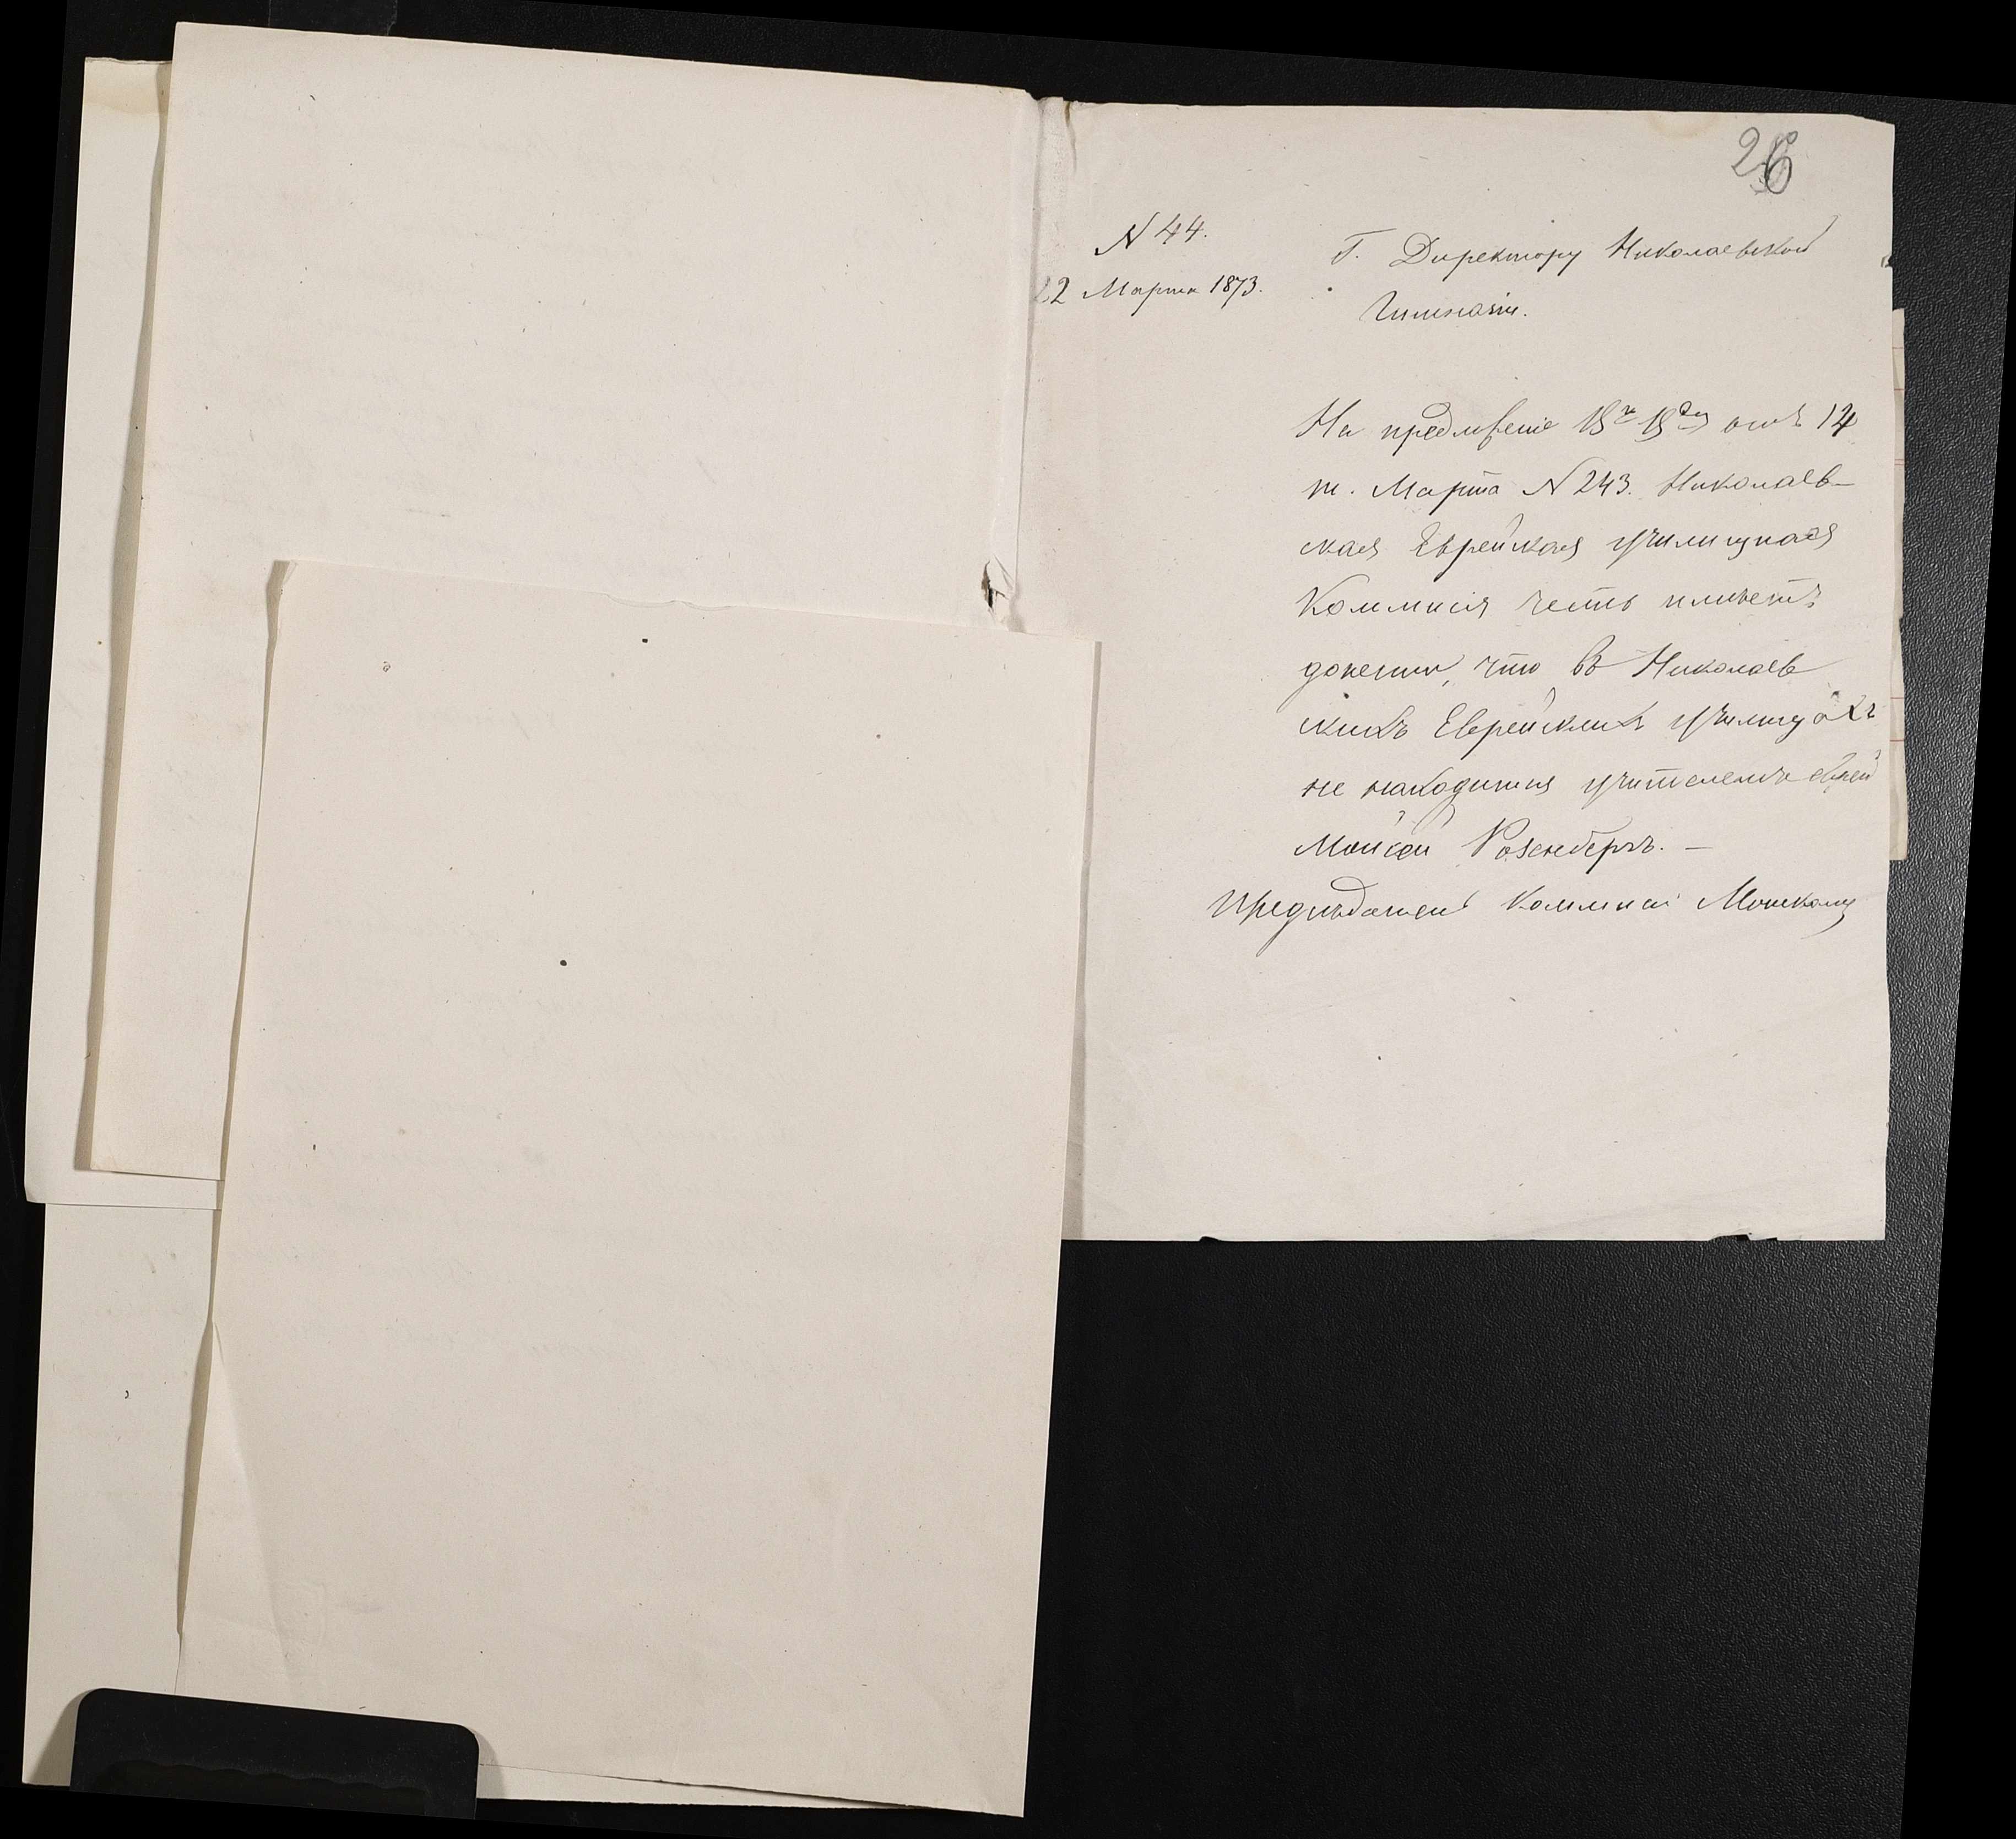 26
N 44.
22 Марта 1873.
Г. Директору Николаевской
Гимназіи.
На предложеніе отъ 14
т. Марта N 243. Николаев-
ская Еврейская училищная
Коммисія честь имѣетъ
донести, что въ Николаев
скихъ Еврейскихъ училищахъ
не находится учителемъ еврей
Моисей Розенбергъ. —
Предсѣдатель Коммисіи